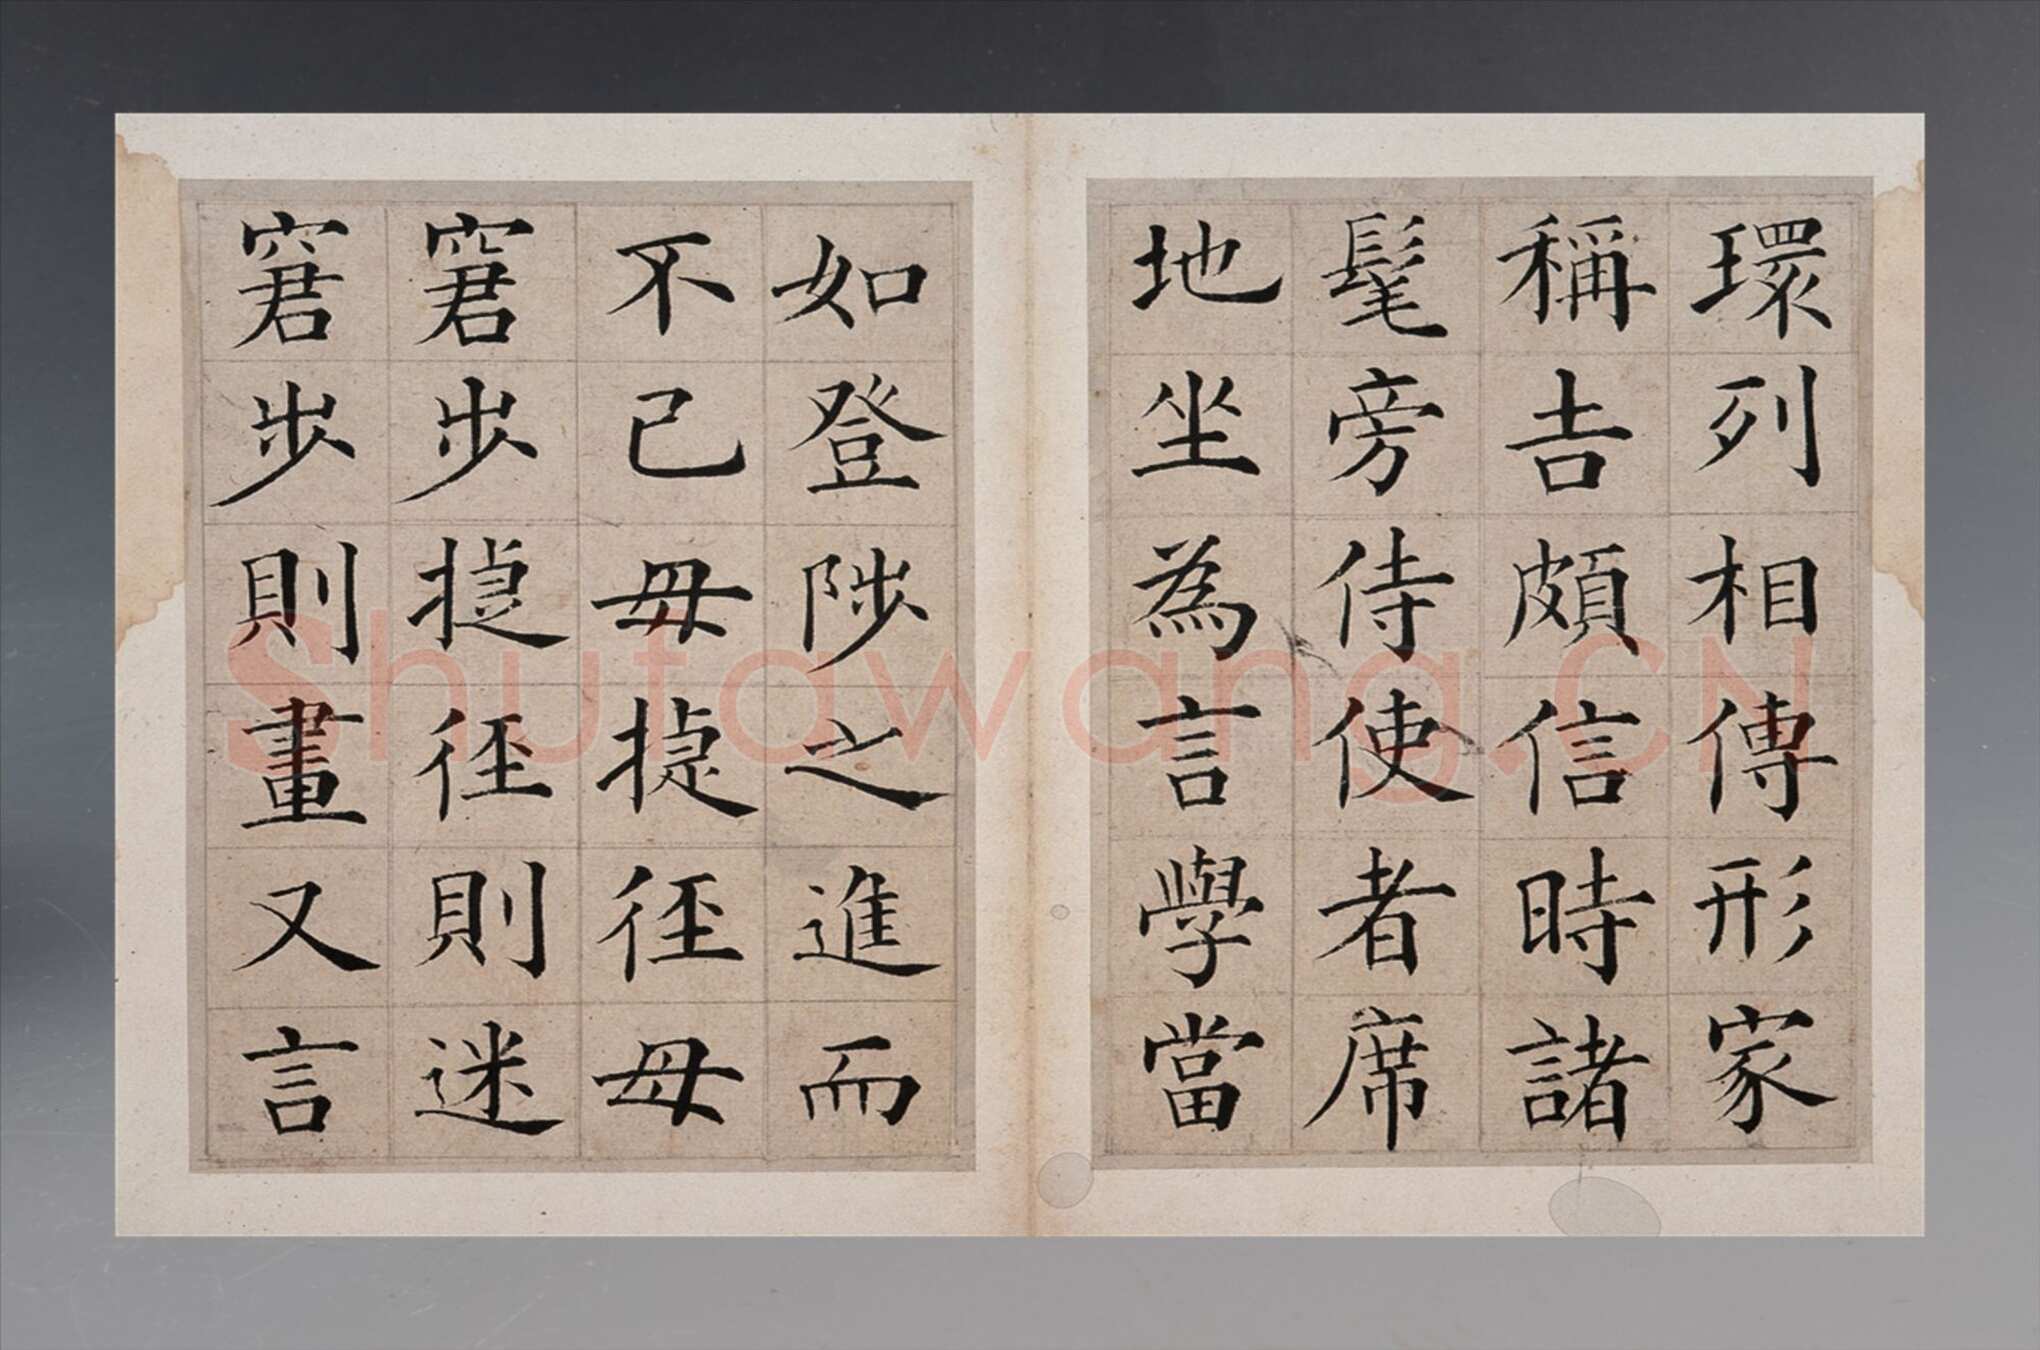 環列相傳形家
稱吉頗信時諸
髦旁侍使者席
地坐為言學當
如登陟之進而
不已毋捷徑毋
窘步捷徑則迷
窘步則畫又言
Shufawang.CN